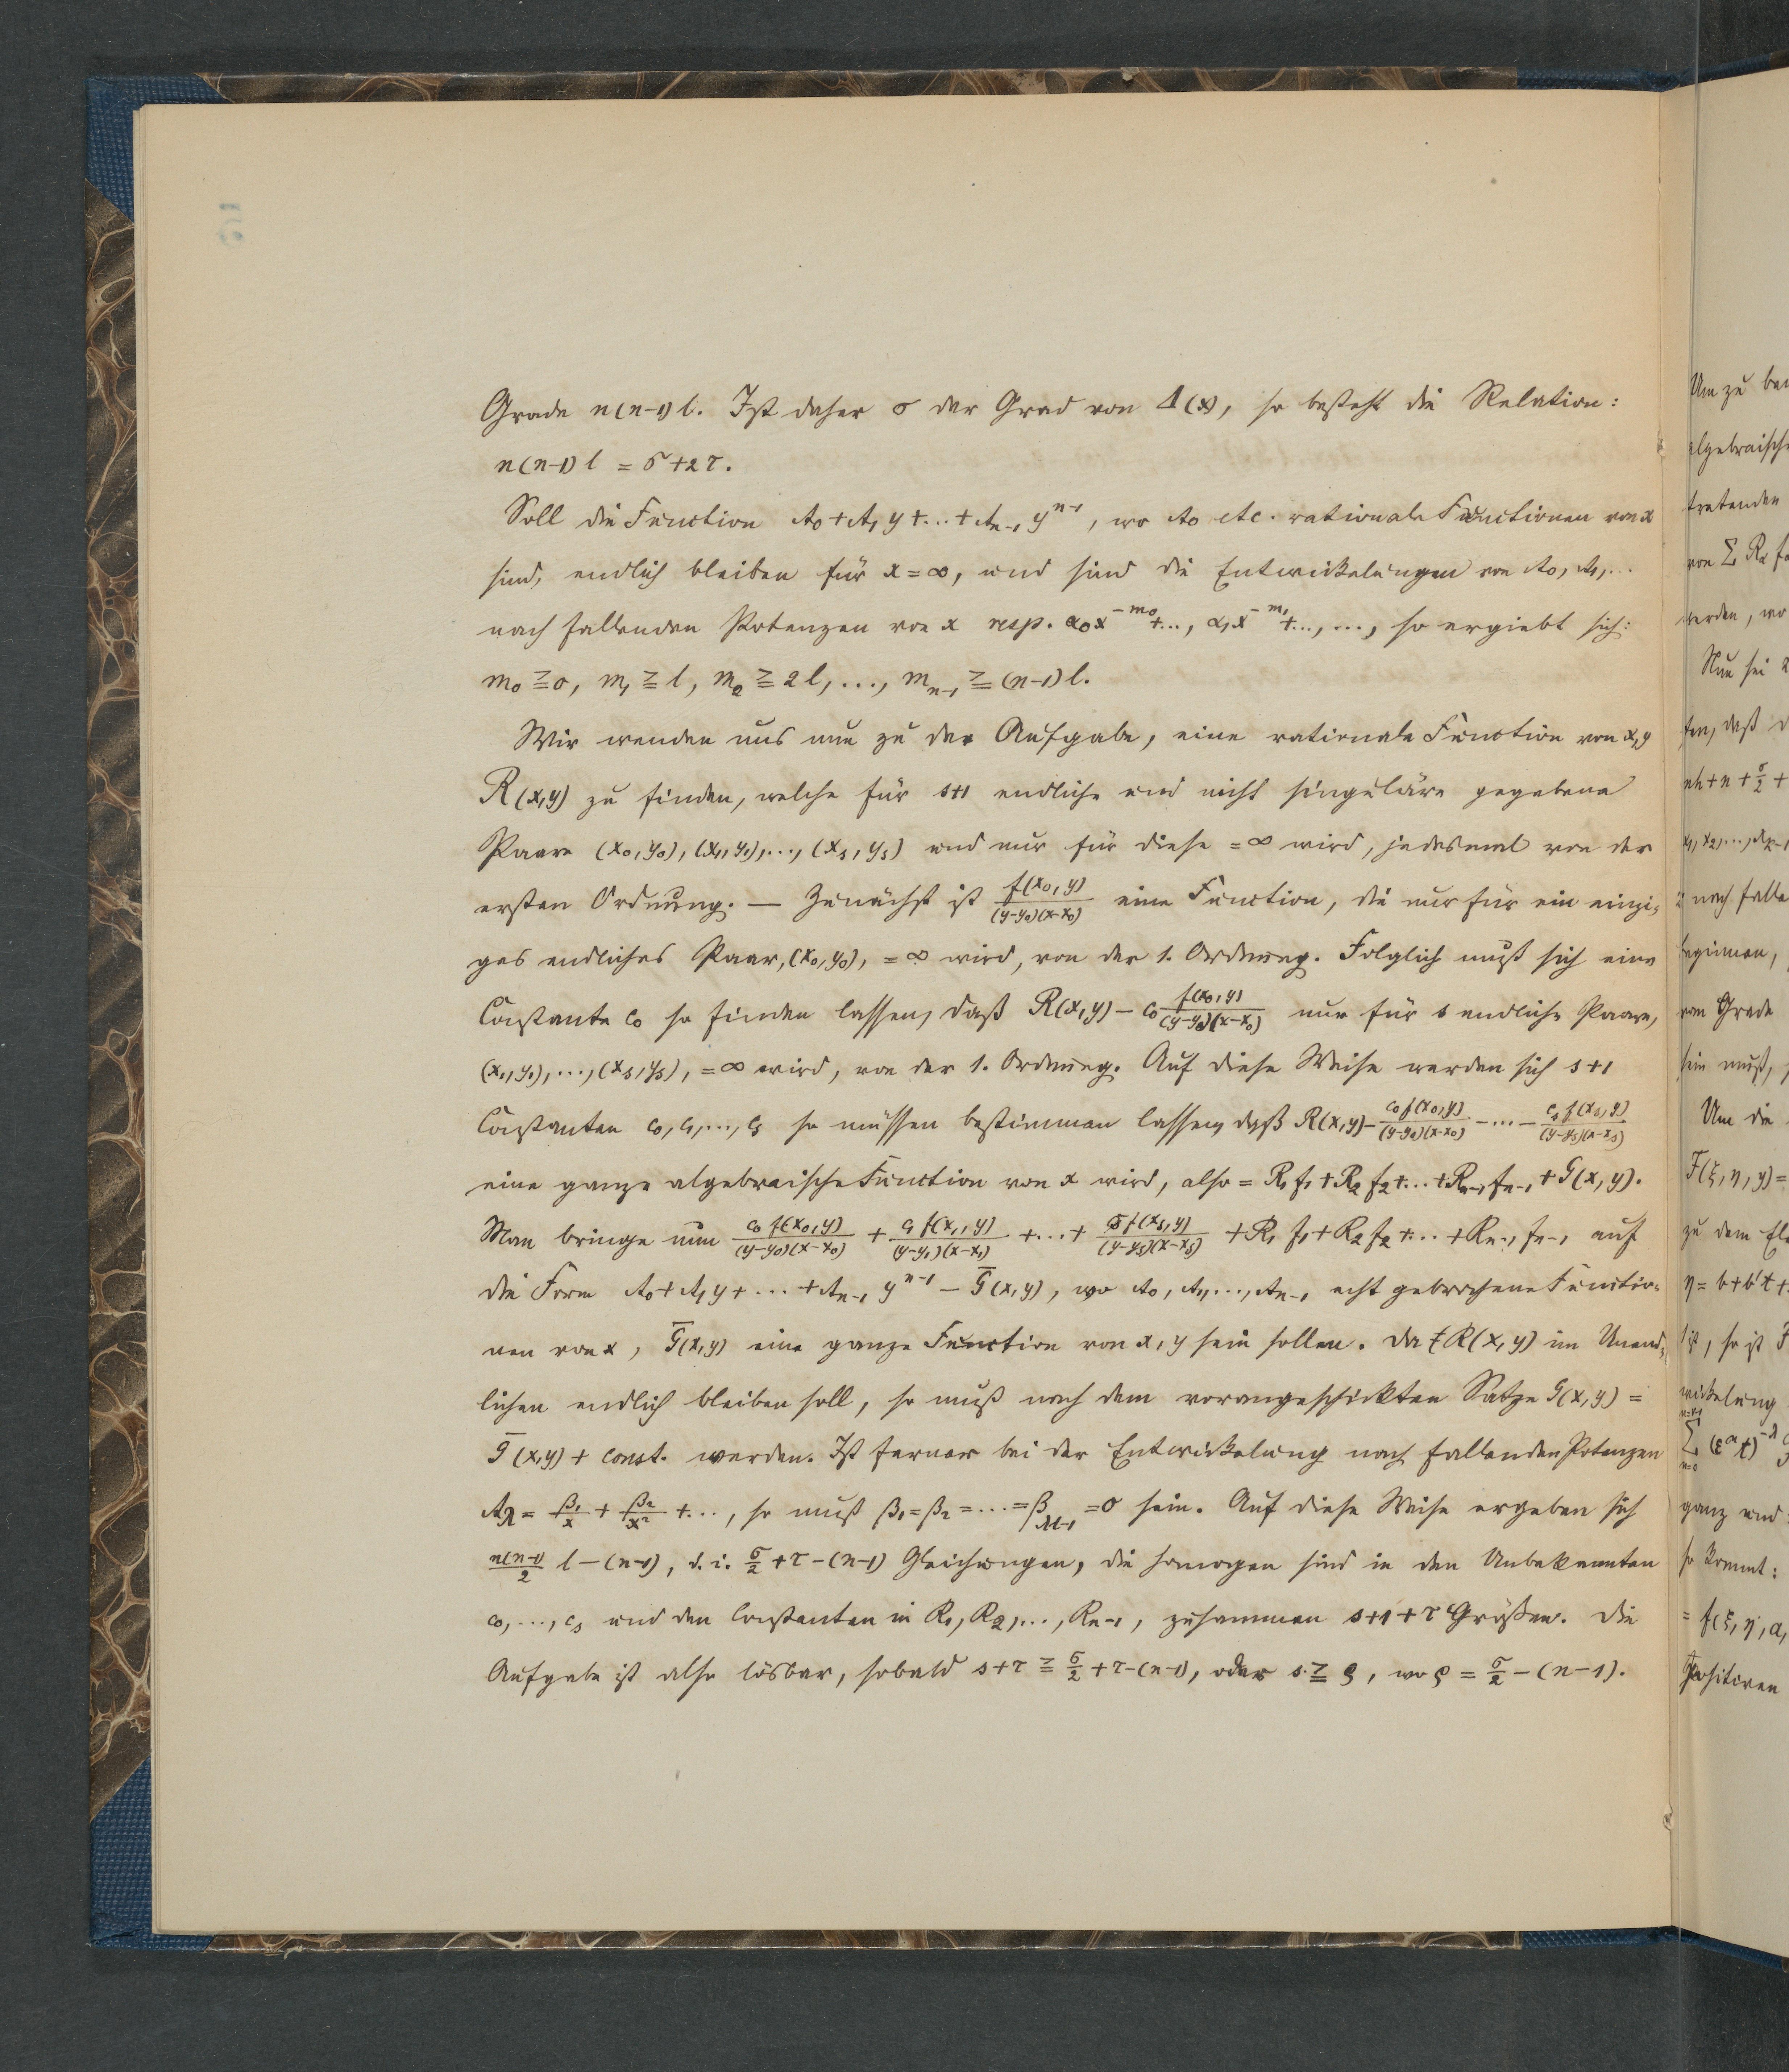 Grade n(n-1)l. Ist daher σ der Grad von Δ(x), so besteht die Relation:
n(n-1)l = σ+2τ.
Soll die Function A₀+A₁y+...+Aₙ₋₁yⁿ⁻¹, wo A₀ etc. rationale Functionen von x
sind, endlich bleiben für x=∞, und sind die Entwickelungen von A₀, A₁,...
nach fallenden Potenzen von x resp. α₀x^{-m₀}+..., α₁x^{-m₁}+..., ..., so ergiebt sich:
m₀ ≧ 0, m₁ ≧ l, m₂ ≧ 2l, ..., mₙ₋₁ ≧ (n-1)l.
Wir wenden uns nun zu der Aufgabe, eine rationale Function von x,y
R(x,y) zu finden, welche für s+1 endliche und nicht singuläre gegebene
Paare (x₀,y₀), (x₁,y₁),..., (xₛ,yₛ) und nur für diese =∞ wird, jedesmal von der
ersten Ordnung. — Zunächst ist f(x₀,y)/((y-y₀)(x-x₀)) eine Function, die nur für ein einzi-
ges endliches Paar, (x₀,y₀), =∞ wird, von der 1. Ordnung. Folglich muß sich eine
Constante c₀ so finden lassen, daß R(x,y) - c₀ f(x₀,y)/((y-y₀)(x-x₀)) nur für s endliche Paare,
(x₁,y₁),...,(xₛ,yₛ), =∞ wird, von der 1. Ordnung. Auf diese Weise werden sich s+1
Constanten c₀, c₁,..., cₛ so müssen bestimmen lassen, daß R(x,y) - c₀f(x₀,y)/((y-y₀)(x-x₀)) - ... - cₛf(xₛ,y)/((y-yₛ)(x-xₛ))
eine ganze algebraische Function von x wird, also = R₁f₁+R₂f₂+...+Rₙ₋₁fₙ₋₁+G(x,y).
Man bringe nun c₀f(x₀,y)/((y-y₀)(x-x₀)) + c₁f(x₁,y)/((y-y₁)(x-x₁)) + ... + cₛf(xₛ,y)/((y-yₛ)(x-xₛ)) + R₁f₁+R₂f₂+...+Rₙ₋₁fₙ₋₁ auf
die Form A₀+A₁y+...+Aₙ₋₁yⁿ⁻¹ - G̅(x,y), wo A₀, A₁,..., Aₙ₋₁ echt gebrochene Functio-
nen von x, G̅(x,y) eine ganze Function von x,y sein sollen. Da R(x,y) im Unend-
lichen endlich bleiben soll, so muß nach dem vorangeschickten Satze G(x,y) =
G̅(x,y) + const. werden. Ist ferner bei der Entwickelung nach fallenden Potenzen
A_λ = β₁/x + β₂/x² + ..., so muß β₁=β₂=...=β_{λl-1}=0 sein. Auf diese Weise ergeben sich
n(n-1)/2 l - (n-1), d. i. σ/2 + τ - (n-1) Gleichungen, die homogen sind in den Unbekannten
c₀,..., cₛ und den Constanten in R₁, R₂,..., Rₙ₋₁, zusammen s+1+τ Größen. Die
Aufgabe ist also lösbar, sobald s+τ ≧ σ/2 + τ - (n-1), oder s ≧ ϱ, wo ϱ = σ/2 - (n-1).
Um zu
tretenden
werden, wo
Nun sei
daß
nach
vom Grade
sein muß,
Um die
F(ξ,η,y) =
zu dem
ist, so ist
wickelung
ganz und
so kommt:
positiven